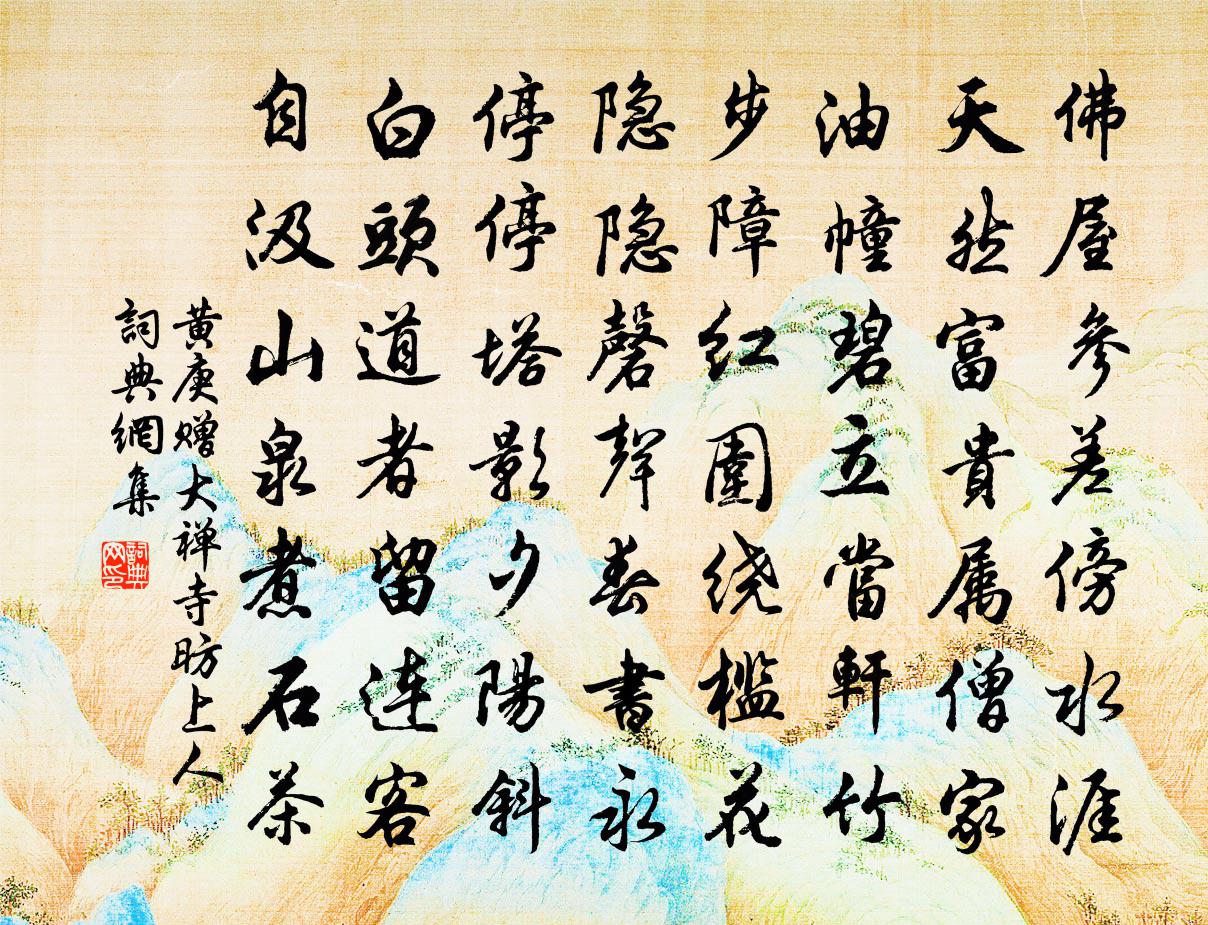 佛屋參差傍水涯
天然富貴属僧家
油幢碧立當軒竹
步障红圍绕檻花
隐隐磬聲春書永
停停塔影夕陽斜
白頭道者留連客
自汲山泉煮石茶
黄庚赠大禅寺昉上人
詞典網集